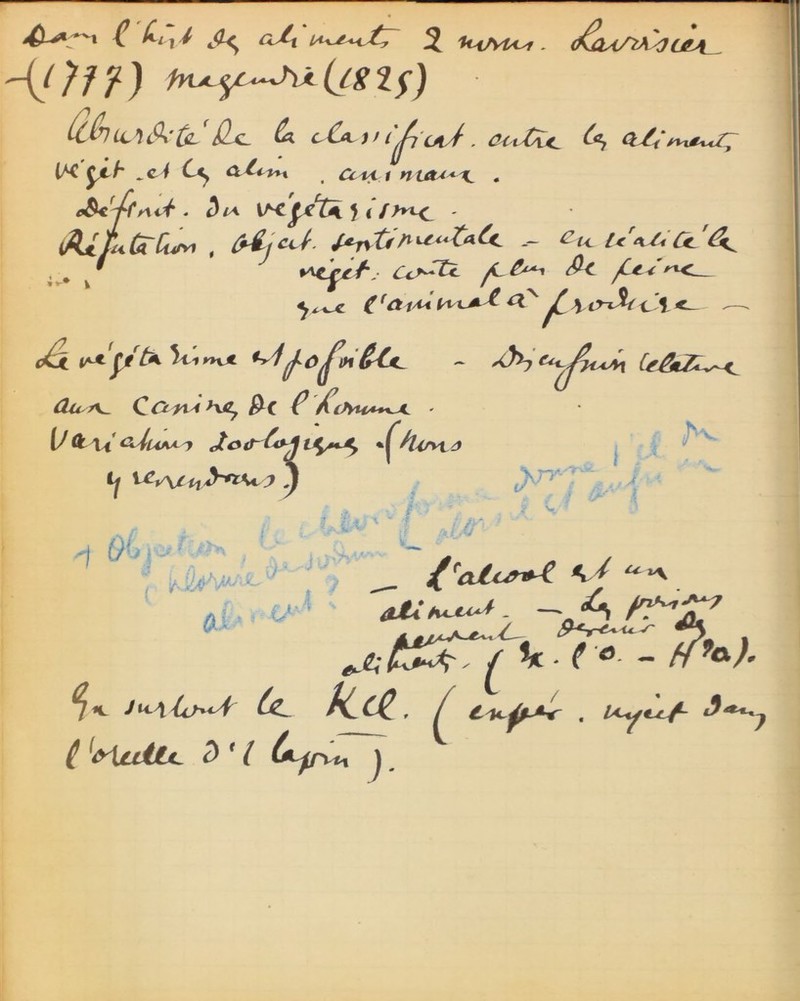 Dans l'hist des aliments 2 noms. Lavoisier
-(1777) Magendie (1825)
Absurdité de la classificat. entre les aliments
végét. et les alim. animaux.
Définit. du végétarisme.
Réfutation, object. sentimentale - en réalité le
végét. coûte plus de peine
que l'animal à produire -
Le végétarisme est possible - Discussion relative
aux canines de l'homme.
Variations zoologiques. (Nous
y reviendrons.)
+ Objection, le chloroforme donne t'il du
chlorure de sodium - alors il est aussi un
aliment?
- L'alcool est un
aliment. - Les poisons
peuvent devenir des
aliments. (Ex. l'O. - H²O).
Ex surtout le KCl. (expér. inject dans
l'oreille d'1 lapin).